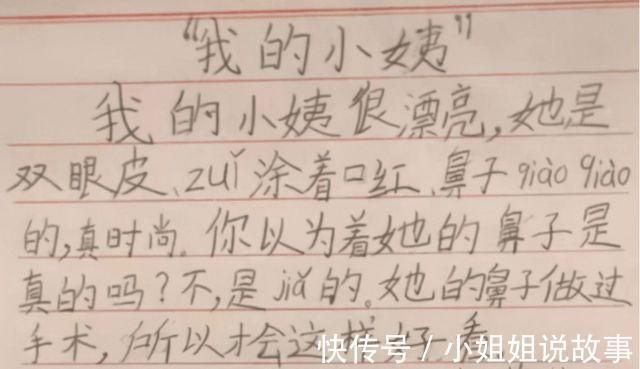 “我的小姨”
我的小姨很漂亮,她是
双眼皮、zuǐ涂着口红、鼻子qiào qiào
的,真时尚。你以为着她的鼻子是
真的吗?不,是jiǎ的。她的鼻子做过
手术,所以才会这样好看
快传号 / 小姐姐说故事